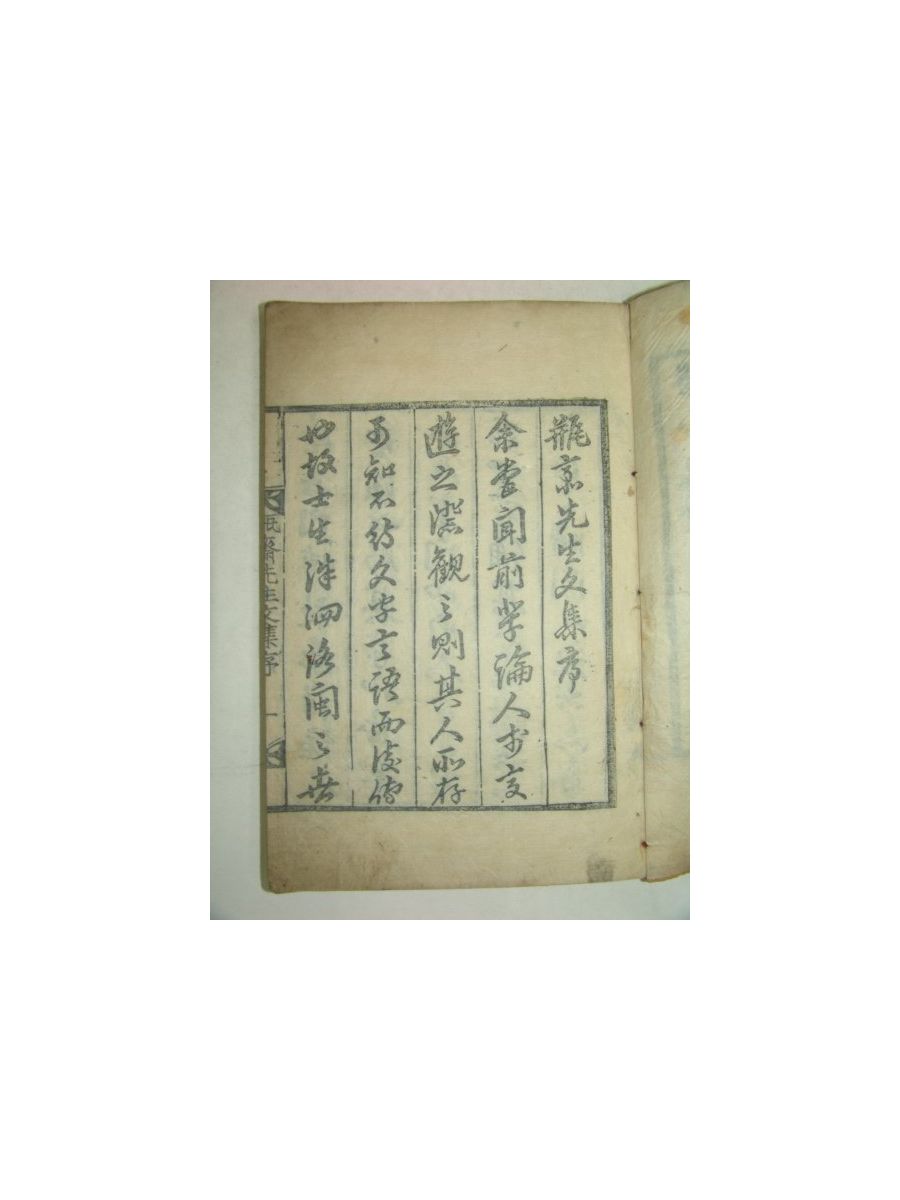 瓶齋先生文集序
余嘗聞前輩論人於交
遊之際觀之則其人所存
可知不待文字言語而後傳
也故士生洙泗洛閩之世
齋先生文集序 一